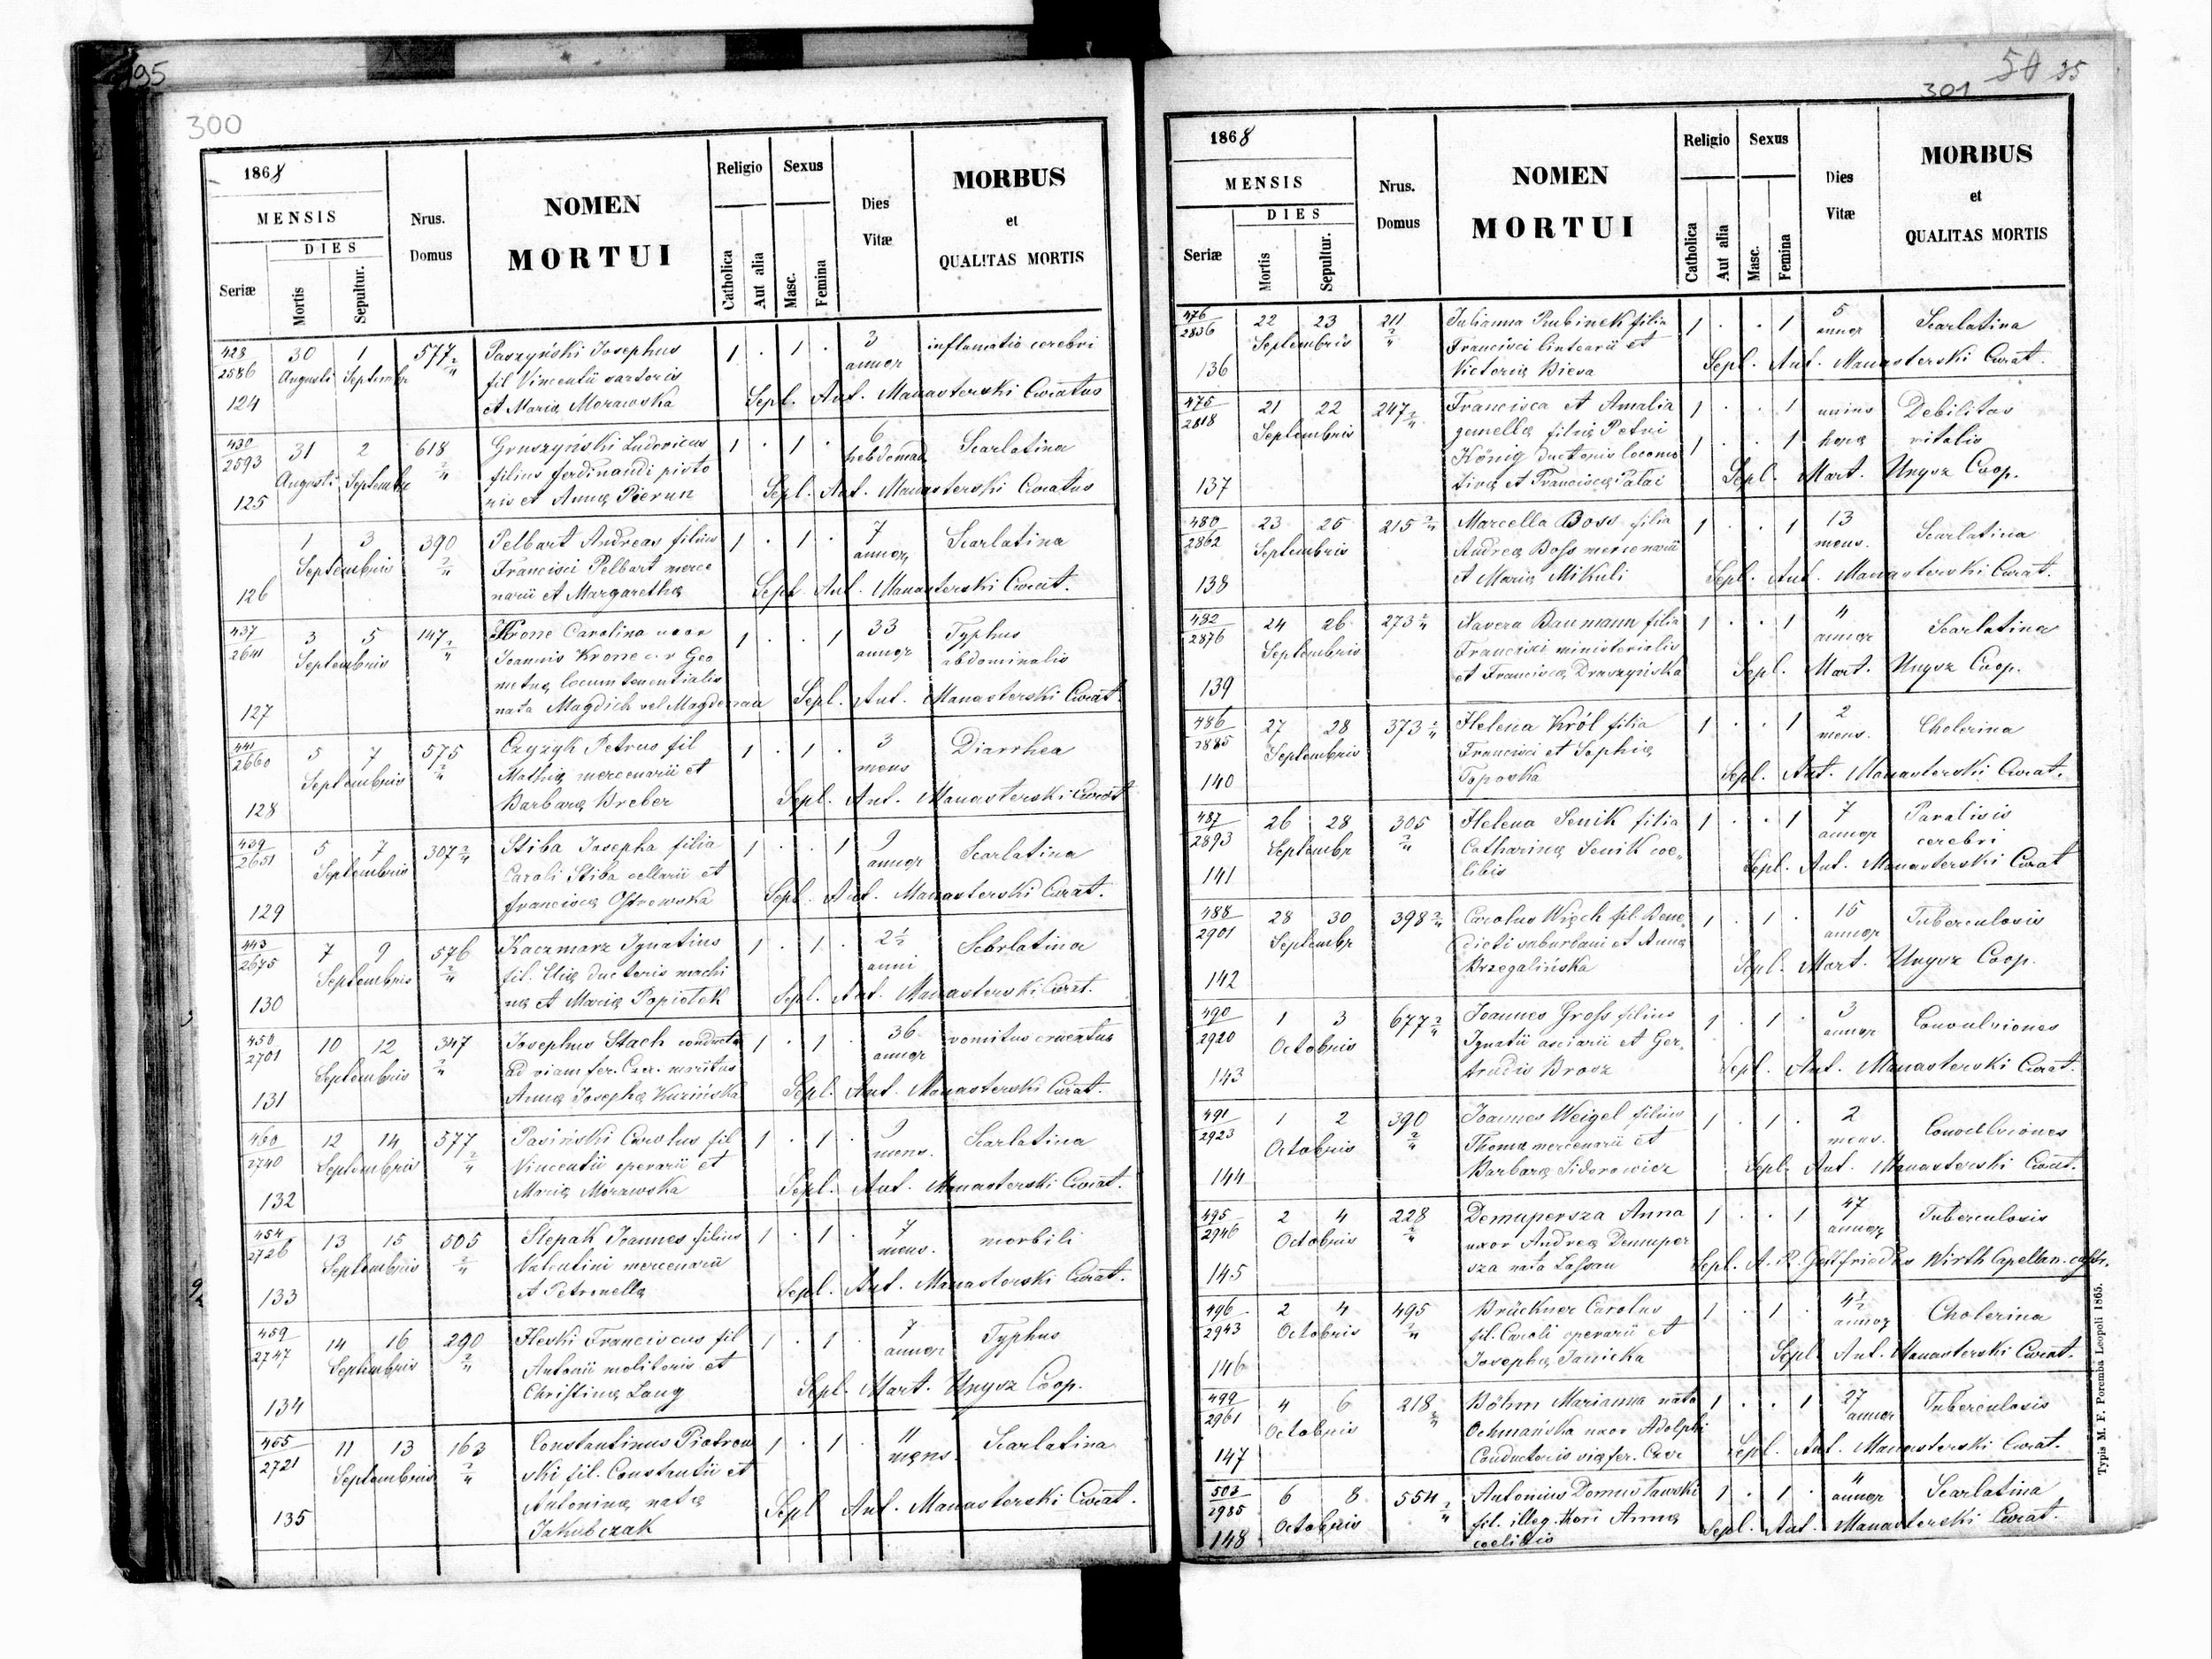 95
300
1868
MENSIS
DIES
Seriæ
Mortis
Sepultur.
Nrus.
Domus
NOMEN
MORTUI
Religio
Catholica
Aut alia
Sexus
Masc.
Femina
Dies
Vitæ
MORBUS
et
QUALITAS MORTIS
428 30 1 577 2/4 Paszyński Josephus 1 · 1 · 3 inflamatio cerebri
2586 Augusti Septembr fil Vincentii sartoris annor
124 et Mariæ Morawska Sepl. Ant. Manasterski Curatus
430 31 2 618 Gruszyński Ludovicus 1 · 1 · 6 Scarlatina
2593 Augusti Septembr 2/4 filius ferdinandi pisto hebdomad
125 ris et Annæ Pierun Sepl. Ant. Manasterski Curatus
1 3 390 Pelbart Andreas filius 1 · 1 · 7 Scarlatina
Septembris 2/4 Francisci Pelbart merce annor
126 narii et Margarethæ Sepl Ant. Manasterski Curat.
437 3 5 147 2/4 Krone Carolina uxor 1 · · 1 33 Typhus
2641 Septembris Joannis Krone c. r Geo annor abdominalis
metræ locumtenentialis
127 nata Magdich vel Magdenau Sepl. Ant. Manasterski Curat.
441 5 7 575 Czyzyk Petrus fil 1 · 1 · 3 Diarrhea
2660 Septembris 2/4 Mathiæ mercenarii et mens
128 Barbaræ Breber Sepl. Ant. Manasterski Curat
439 5 7 307 2/4 Stiba Josepha filia 1 · · 1 9 Scarlatina
2651 Septembris Caroli Stiba cellarii et annor
129 Franciscæ Ostrowska Sepl. Ant. Manasterski Curat.
443 7 9 576 Kaczmarz Ignatius 1 · 1 · 2 1/2 Scarlatina
2675 Septembris 2/4 fil. Eliæ ductoris machi anni
130 næ et Mariæ Popiotek Sepl. Ant. Manasterski Curat.
450 10 12 347 Josephus Stach conducto 1 · 1 · 36 vomitus cruentus
2701 Septembris 2/4 ad viam fer. Czer. maritus annor
131 Annæ Josephæ Kuzińska Sepl. Ant. Manasterski Curat.
460 12 14 577 Pasiński Carolus fil 1 · 1 · 9 Scarlatina
2740 Septembris 2/4 Vincentii operarii et mens.
132 Mariæ Morawska Sepl. Ant. Manasterski Curat.
454 13 15 505 Stepak Joannes filius 1 · 1 · 7 morbili
2726 Septembris 2/4 Valentini mercenarii mens.
133 et Petronellæ Sepl. Ant. Manasterski Curat.
459 14 16 290 Heski Franciscus fil 1 · 1 · 7 Typhus
2747 Septembris 2/4 Antonii molitoris et annor
134 Christinæ Lang Sepl. Mart. Unysz Coop.
465 11 13 163 Constantinus Piotrow 1 · 1 · 11 Scarlatina
2721 Septembris 2/4 ski fil. Constantii et mens.
Antoninæ natæ
135 Jakubczak Sepl Ant. Manasterski Curat.
50 35
301
1868
MENSIS
DIES
Seriæ
Mortis
Sepultur.
Nrus.
Domus
NOMEN
MORTUI
Religio
Catholica
Aut alia
Sexus
Masc.
Femina
Dies
Vitæ
MORBUS
et
QUALITAS MORTIS
476 22 23 211 Julianna Rubinek filia 1 · · 1 5 Scarlatina
2836 Septembris 2/4 Francisci lintearii et annor
136 Victoriæ Biesa Sepl. Ant. Manasterski Curat.
475 21 22 247 2/4 Francisca et Amalia 1 · · 1 unius Debilitas
2818 Septembris gemellæ filiæ Petri 1 · · 1 horæ vitalis
König ductoris locomo
137 tivæ et Franciscæ Palai Sepl. Mart. Unysz Coop.
480 23 25 215 2/4 Marcella Boss filia 1 · · 1 13 Scarlatina
2862 Septembris Andreæ Boss mercenarii mens.
138 et Mariæ Mikuli Sepl. Ant. Manasterski Curat.
482 24 26 273 2/4 Xavera Baumann filia 1 · · 1 4 Scarlatina
2876 Septembris Francisci ministerialis annor
139 et Franciscæ Draszyńska Sepl. Mart. Unysz Coop.
486 27 28 373 2/4 Helena Król filia 1 · · 1 2 Cholerina
2885 Septembris Francisci et Sophiæ mens.
140 Toposka Sepl. Ant. Manasterski Curat.
487 26 28 305 Helena Senik filia 1 · · 1 7 Paralisis
2893 Septembr 2/4 Catharinæ Senik coe annor cerebri
141 libis Sepl. Ant. Manasterski Curat
488 28 30 398 2/4 Carolus Więch fil. Bene 1 · 1 · 15 Tuberculosis
2901 Septembr dicti suburbani et Annæ annor
142 Brzegalińska Sepl. Mart. Unysz Coop.
490 1 3 677 2/4 Joannes Gross filius 1 · 1 · 3 Convulsiones
2920 Octobris Ignatii asciarii et Ger annor
143 trudis Brosz Sepl. Ant. Manasterski Curat.
491 1 2 390 Joannes Weigel filius 1 · 1 · 2 Convulsiones
2923 Octobris 2/4 Thomæ mercenarii et mens.
144 Barbaræ Sidorowicz Sepl. Ant. Manasterski Curat.
495 2 4 228 Demupersza Anna 1 · · 1 47 Tuberculosis
2946 Octobris 2/4 uxor Andreæ Demuper annor
145 sza nata Lassau Sepl. A. R. Gottfriedus Wirth Capellan. castr.
496 2 4 495 Brückner Carolus 1 · 1 · 4 1/2 Cholerina
2943 Octobris 2/4 fil. Caroli operarii et annor
146 Josephæ Janicka Sepl Ant. Manasterski Curat.
499 4 6 218 2/4 Böhm Marianna nata 1 · · 1 27 Tuberculosis
2961 Octobris Ochmańska uxor Adolphi annor
147 Conductoris viæ fer. Czer Sepl. Ant. Manasterski Curat.
503 6 8 554 2/4 Antonius Domustawski 1 · 1 · 4 Scarlatina
2985 Octobris fil. illeg. thori Annæ annor
148 coelibis Sepl. Ant. Manasterski Curat.
Typis M. F. Poremba Leopoli 1865.